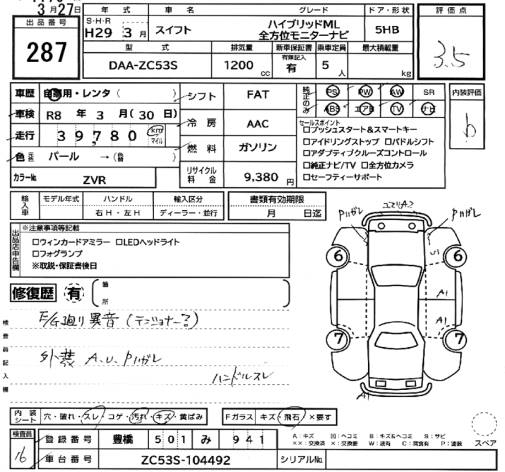 3月27日
出品番号
287
年式 車名 グレード ドア・形状
S・H・R
H29 3月 スイフト ハイブリッドML
全方位モニターナビ 5HB
型式 排気量 新車保証書 乗車定員 最大積載量
有限無く
DAA-ZC53S 1200cc 有 5人 kg
評価点
3.5
車歴 自家用・レンタ( )
シフト FAT
車検 R8年3月(30日)
冷房 AAC
走行 39,780 km マイル
燃料 ガソリン
色 パール →( )
カラーNo. ZVR
リサイクル料金 9,380円
純正のみ
PS PW AW SR
ABS エアB TV ナビ
内装評価
b
セールスポイント
□プッシュスタート&スマートキー
□アイドリングストップ □パドルシフト
□アダプティブクルーズコントロール
□純正ナビ/TV □全方位カメラ
□セーフティーサポート
輸入車
モデル年式 ハンドル 輸入区分
右H・左H ディーラー・並行
書類有効期限
月 日迄
出品店申告欄
※注意事項等記載
□ウィンカードアミラー □LEDヘッドライト
□フォグランプ
※取説・保証書後日
修復歴 有
箇所
検査員記入欄
E/G廻り異音(テンショナー?)
外装 A.U.Pハガレ
ハンドルスレ
Pハガレ
Pハガレ
U1
A1
A1
6 6
7 7
内装シート
穴・破れ・スレ・コゲ・汚れ・キズ・黄ばみ
Fガラス キズ・飛石・×要す
検査員
16
登録番号 豊橋 501 み 941
車台番号 ZC53S-104492
シリアルNo.
A:キズ U:ヘコミ B:キズ&ヘコミ S:サビ
××:交換済 X:交換要 W:波有 C:腐食有 P:塗装
スペア